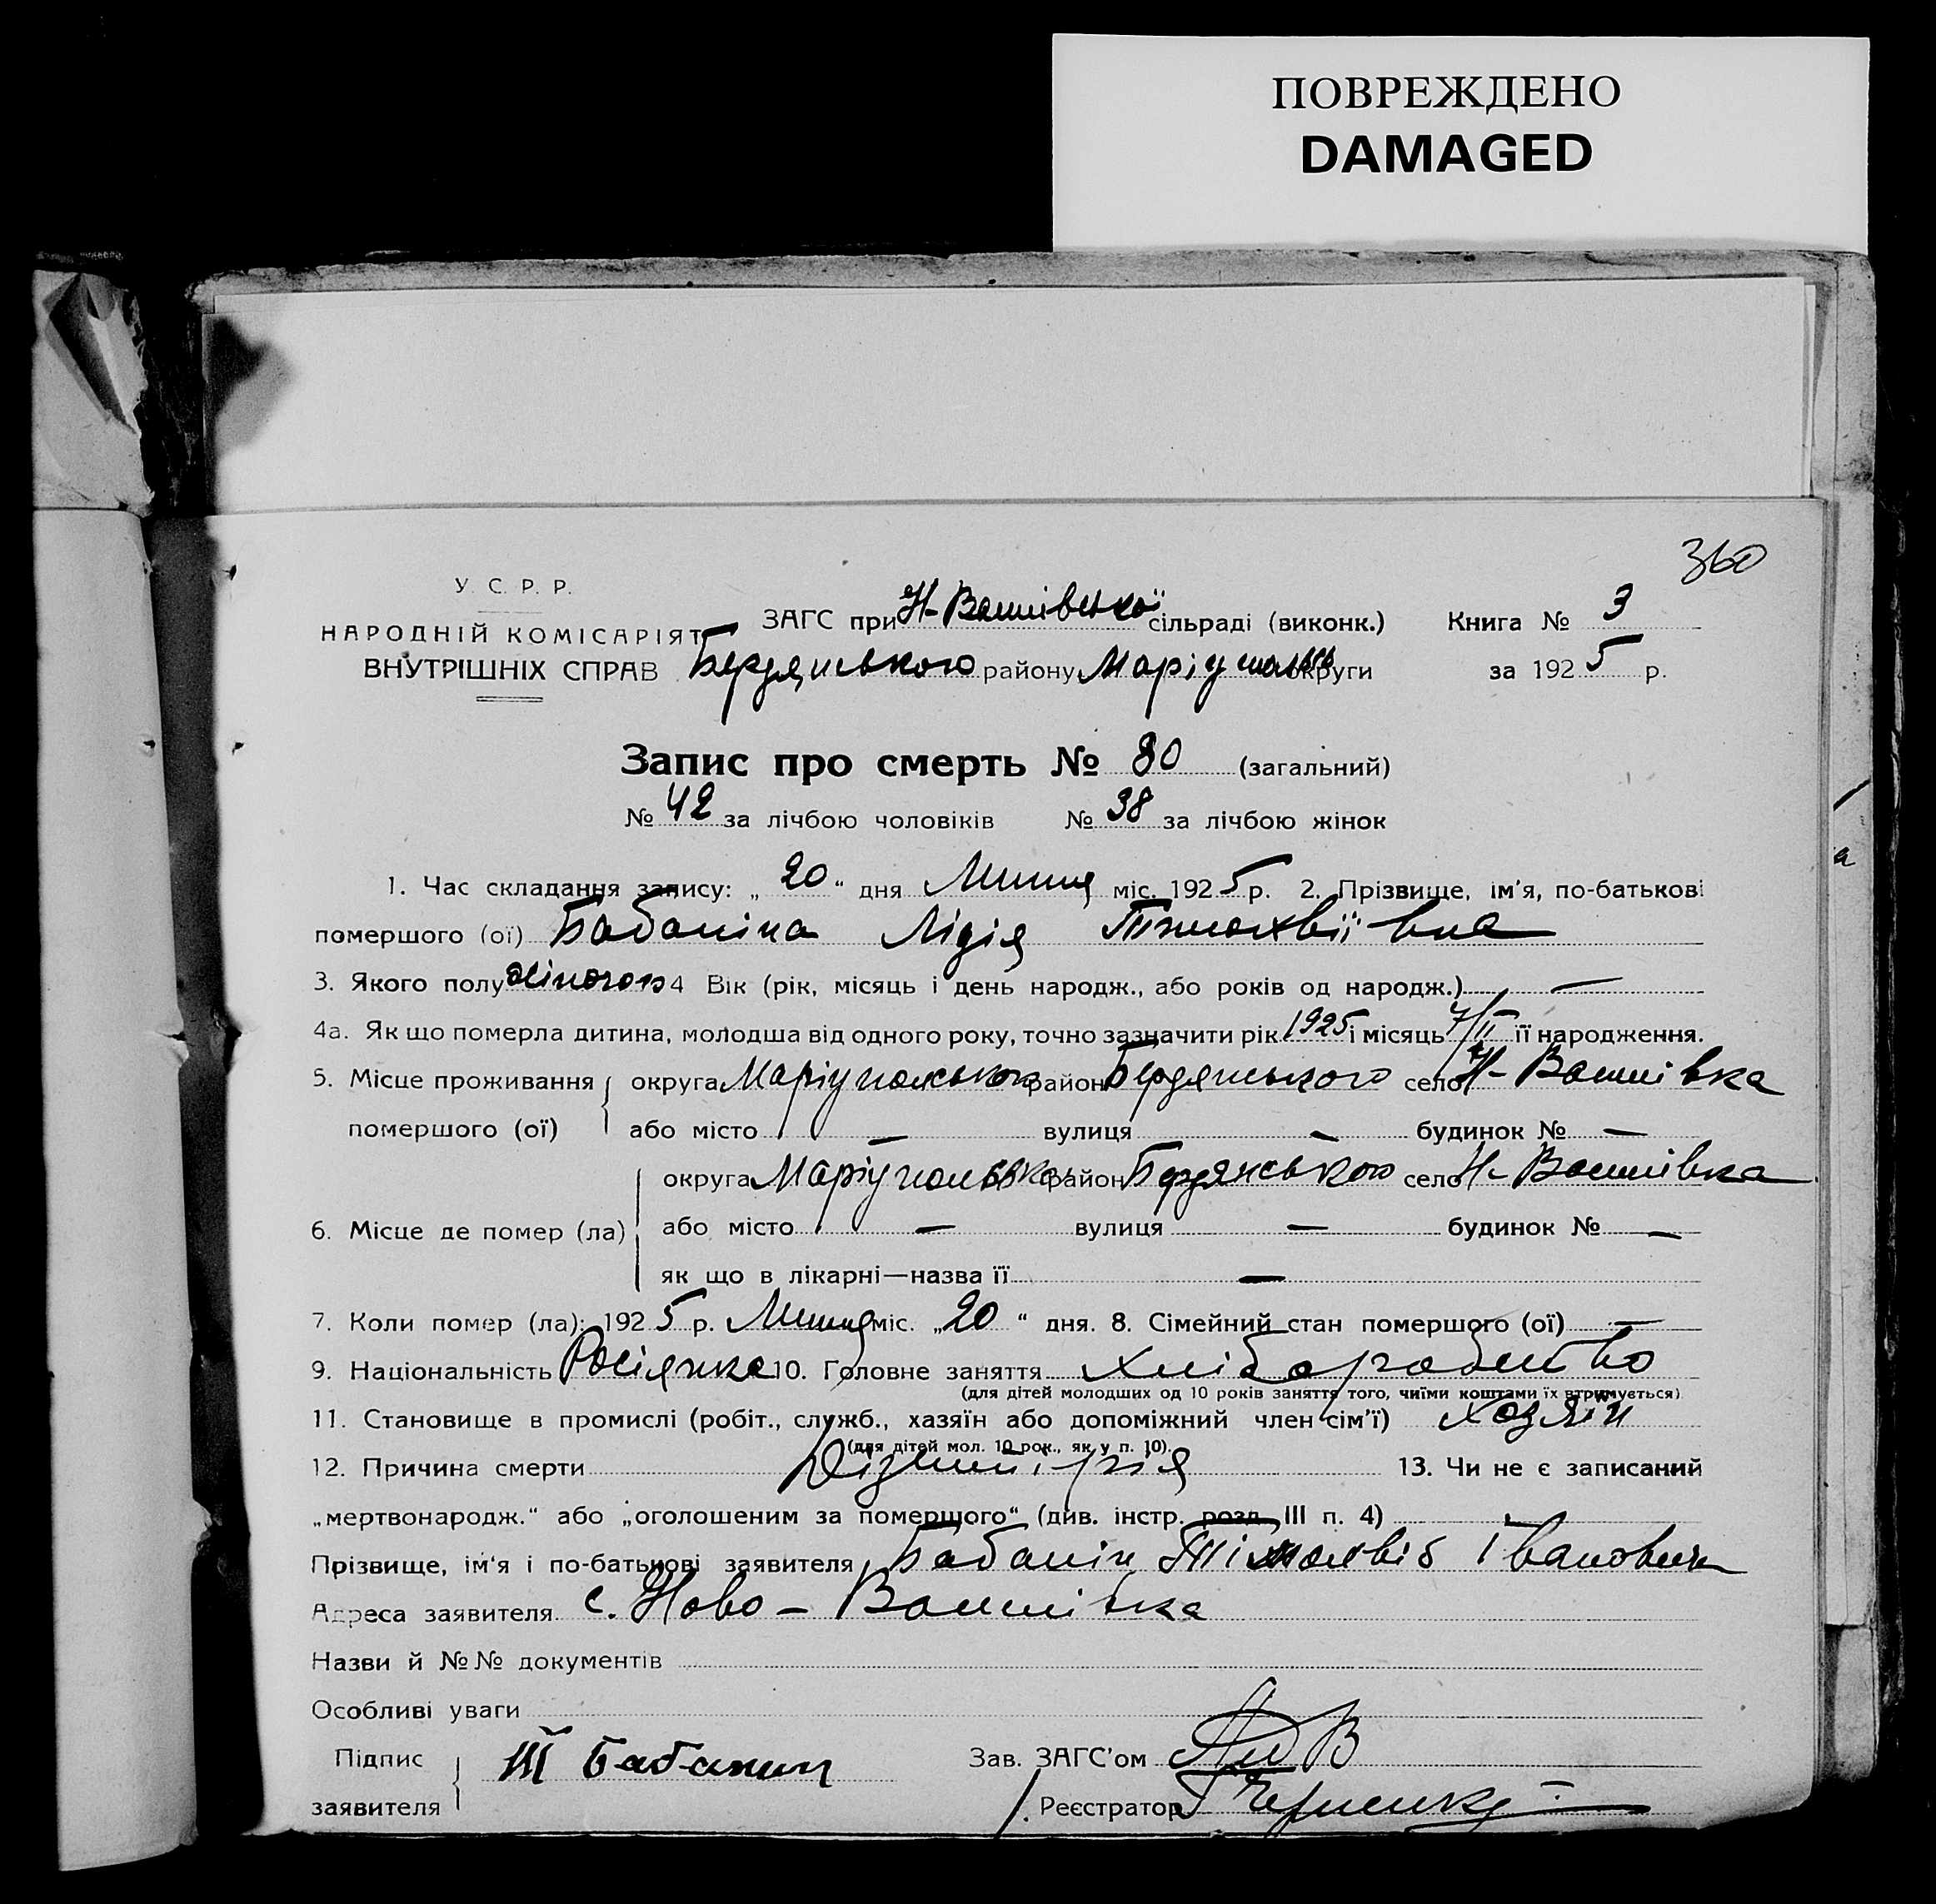 ПОВРЕЖДЕНО
DAMAGED
360
У. С. Р. Р.
НАРОДНІЙ КОМІСАРІЯТ
ВНУТРІШНІХ СПРАВ
ЗАГС при Н-Василівської сільраді (виконк.) Книга № 3
Бердянського району Маріупольсь округи за 1925 р.
Запис про смерть № 80 (загальний)
№ 42 за лічбою чоловіків № 38 за лічбою жінок
1. Час складання запису: „ 20 “ дня Липня міс. 1925 р. 2. Прізвище, ім'я, по-батькові
помершого (ої) Бабаніна Лідія Тімохвіївна
3. Якого полу жіночого 4 Вік (рік, місяць і день народж., або років од народж.) —
4а. Як що померла дитина, молодша від одного року, точно зазначити рік 1925 і місяць 7/II її народження.
5. Місце проживання округа Маріупольського район Бердянського село Н-Василівка
помершого (ої) або місто — вулиця — будинок № —
округа Маріупольсько район Бердянського село Н-Василівка
6. Місце де помер (ла) або місто — вулиця — будинок № —
як що в лікарні—назва її —
7. Коли помер (ла): 1925 р. Липня міс. „20 “ дня. 8. Сімейний стан помершого (ої) —
9. Національність Росіянка 10. Головне заняття хліборобство
(для дітей молодших од 10 років заняття того, чиїми коштами їх втримується)
11. Становище в промислі (робіт., служб., хазяїн або допоміжний член сім'ї) хозяїн
(для дітей мол. 10 рок., як у п. 10).
12. Причина смерти Дізентірія 13. Чи не є записаний
„мертвонародж.“ або „оголошеним за померщого“ (див. інстр. розд. III п. 4) —
Прізвище, ім'я і по-батькові заявителя Бабанін Тімохвій Іванович
Адреса заявителя с. Ново-Василівка
Назви й №№ документів
Особливі уваги
Підпис заявителя Т Бабанин Зав. ЗАГС'ом
Реєстратор